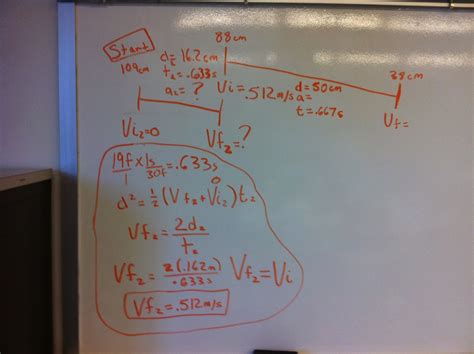 Start
109cm
d₂=16.2cm
t₂=.633s
a₂=?
88cm
Vi=.512m/s
d=50cm
a=
t=.667s
38cm
Uf=
Vi₂=0
Vf₂=?
19f/1 x 1s/30f=.633s
d²=½(Vf₂+Vi₂)t₂
0
Vf₂=2d₂/t₂
Vf₂=2(.162m)/.633s
Vf₂=Vi
Vf₂=.512m/s